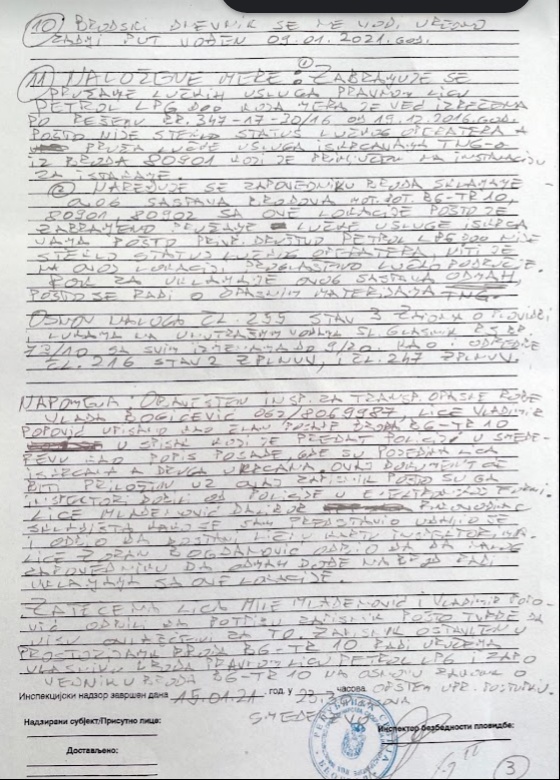 10) BRODSKI DNEVNIK SE NE VODI UREDNO
ZADNJI PUT VOĐEN 09.01.2021.GOD.
11) NALOŽENE MERE: ① ZABRANJUJE SE
PRUŽANJE LUČKIH USLUGA PRAVNOM LICU
PETROL LPG DOO KOJA MERA JE VEĆ IZREČENA
PO REŠENJU BR. 347-17-30/16 OD 19.12.2016.GOD.
POŠTO NIJE STEKLO STATUS LUČKOG OPERATERA A
PRUŽA LUČKE USLUGE ISKRCAVANJA TNG-A
IZ BRODA 80901 KOJI JE PRIKLJUČEN NA INSTALACIJU
ZA ISTAKANJE.
② NAREĐUJE SE ZAPOVEDNIKU BRODA SKLANJANJE
OVOG SASTAVA BRODOVA MOT. BG-TR 10,
80901, 80902 SA OVE LOKACIJE POŠTO JE
ZABRANJENO PRUŽANJE LUČKE USLUGE ISKRCA
VANJA POŠTO PRIV. DRUŠTVO PETROL LPG DOO NIJE
STEKLO STATUS LUČKOG OPERATERA, NITI JE
NA OVOJ LOKACIJI PROGLAŠENO LUČKO PODRUČJE.
ROK ZA UKLANJANJE OVOG SASTAVA ODMAH,
POŠTO SE RADI O OPASNIM MATERIJAMA TNG.
OSNOV NALOGA ČL. 239 STAV 3 ZAKONA O PLOVIDBI
I LUKAMA NA UNUTRAŠNJIM VODAMA SL. GLASNIK RS BR.
73/10 SA SVIM IZMENAMA DO 9/20 KAO I ODREDBE
ČL. 216 STAV 2 ZPLNUV, I ČL. 247 ZPLNUV.
NAPOMENA: OBAVEŠTEN INSP. ZA TRANSP. OPASNE ROBE
VLADA BOGIĆEVIĆ 062/8069987, LICE VLADIMIR
POPOVIĆ UPISANO KAO ČLAN POSADE BRODA BG-TR 10
U SPISAK KOJI JE PREDAT POLICIJI U SMEDE-
REVU KAO POPIS POSADE, GDE SU POJEDINA LICA
ISKRCANA A DRUGA UKRCANA, OVAJ DOKUMENT ĆE
BITI PRILOŽEN UZ OVAJ ZAPISNIK POŠTO SU GA
INSPEKTORI DOBILI OD POLICIJE U
LICE MLADENOVIĆ DALIBOR
SKLADIŠTA KAKO SE SAM PREDSTAVIO UDALJIO SE
I ODBIO DA DOSTAVI LIČNU KARTU INSPEKTORIMA.
LICE ZORAN BOGDANOVIĆ ODBIO DA DA
ZAPOVEDNIKU DA ODMAH DOĐE NA BROD RADI
UKLANJANJA SA OVE LOKACIJE.
ZATEČENA LICA MILE MLADENOVIĆ I VLADIMIR POPO
VIĆ ODBILI DA POTPIŠU ZAPISNIK POŠTO TVRDE DA
NISU OVLAŠĆENI ZA TO. ZAPISNIK OSTAVLJEN U
PROSTORIJAMA BRODA BG-TR 10 RADI URUČENJA
VLASNIKU BRODA PRAVNOM LICU PETROL LPG I ZAPO
VEDNIKU BRODA BG-TR 10 NA OSNOVU ZAKONA O
Инспекцијски надзор завршен дана 15.01.21 год. у часова. OPŠTEM UPR. POSTUPKU.
SMEDEREVO
Надзирани субјект/Присутно лице:
Инспектор безбедности пловидбе:
Достављено:
3